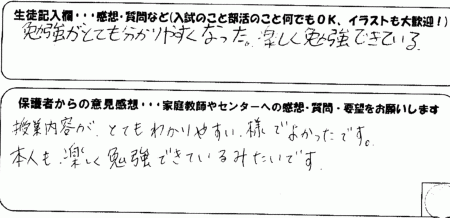 生徒記入欄・・・感想・質問など(入試のこと部活のこと何でもOK、イラストも大歓迎!)
勉強がとても分かりやすくなった。楽しく勉強できている。
保護者からの意見感想・・・家庭教師やセンターへの感想・質問・要望をお願いします
授業内容が、とてもわかりやすい様でよかったです。
本人も楽しく勉強できているみたいです